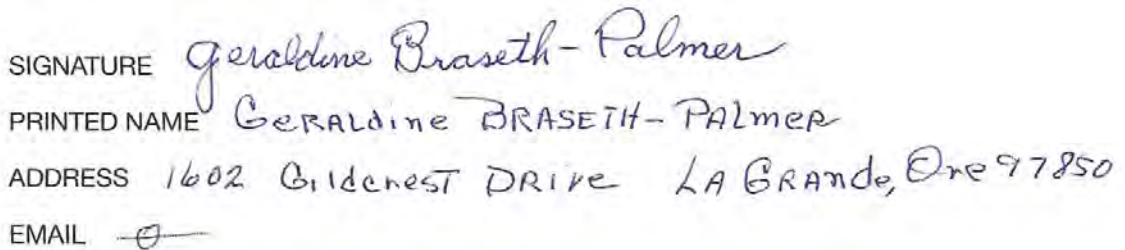 SIGNATURE Geraldine Braseth-Palmer
PRINTED NAME Geraldine BRASETH-PALmeR
ADDRESS 1602 Gildcrest DRIVE LA GRANde, Ore 97850
EMAIL